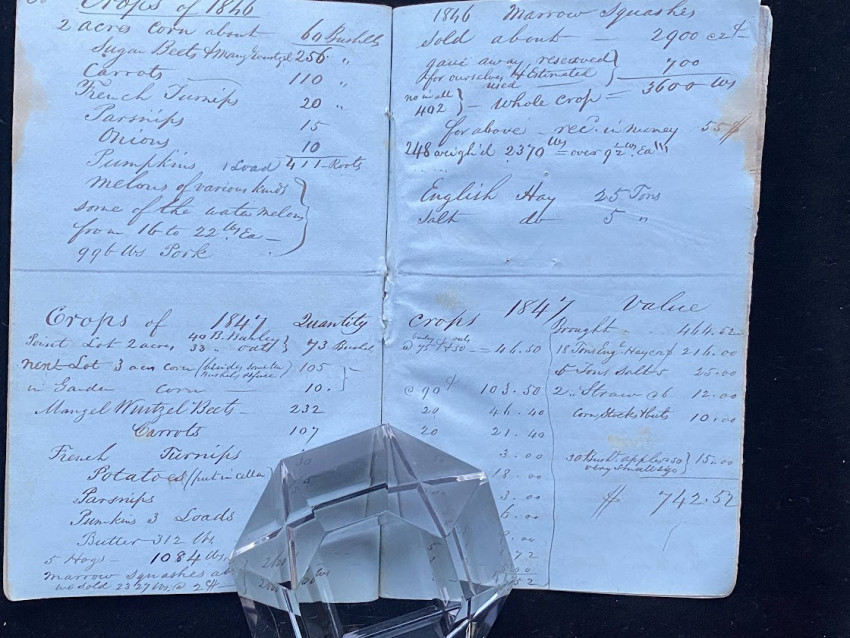 Crops of 1846
2 acres corn about 60 Bushels
Sugar Beets & Mang Wurtzel 256 "
Carrots 110 "
French Turnips 20 "
Parsnips 15
Onions 10
Pumpkins 1 Load 411 Roots
Melons of various kinds
some of the water melons
from 16 to 22 lbs Ea
996 lbs Pork
1846 Marrow Squashes
sold about 2900 @ 2¢
gave away, reserved
for ourselves & Estimated 700
used
no in all 402 } Whole crop = 3600 lbs
for above rec. in money 55 $
248 weigh'd 2370 lbs = over 9½ lbs Ea
English Hay 25 Tons
Salt do 5 "
Crops of 1847 Quantity
Point Lot 2 acres 40 B. Barley
33 " oats } 73 Bushel
next Lot 3 acres corn 105
in Garden corn 10.
Mangel Wurtzel Beets 232
Carrots 107
French Turnips 30
Potatoes (put in cellar)
Parsnips
Pumkins 3 Loads
Butter 312 lbs
5 Hogs 1084 lbs
Marrow Squashes
we sold 2327 lbs @ 2¢
Crops 1847 Value
46.50
@ 90¢ 103.50
20 46.40
20 21.40
3.00
18.00
3.00
6.00
Brought 464.52
18 Tons Eng. Hay 216.00
5 Tons Salt 5 25.00
2 " Straw @ 6 12.00
Corn Stocks & Huts 10.00
30 Bush. apples @ 50
very small } 15.00
$ 742.52